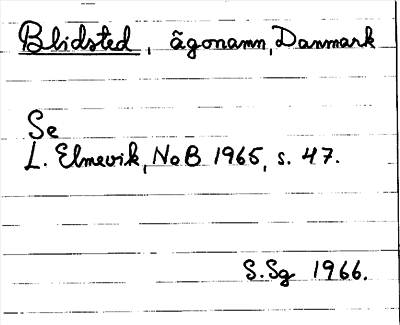 Blidsted, ägonamn, Danmark
Se
L. Elmevik, NoB 1965, s. 47.
S.Sg 1966.